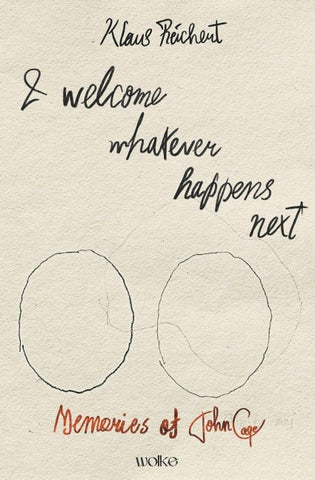 Klaus Reichert
I welcome
whatever
happens
next
Memories of John Cage
wolke